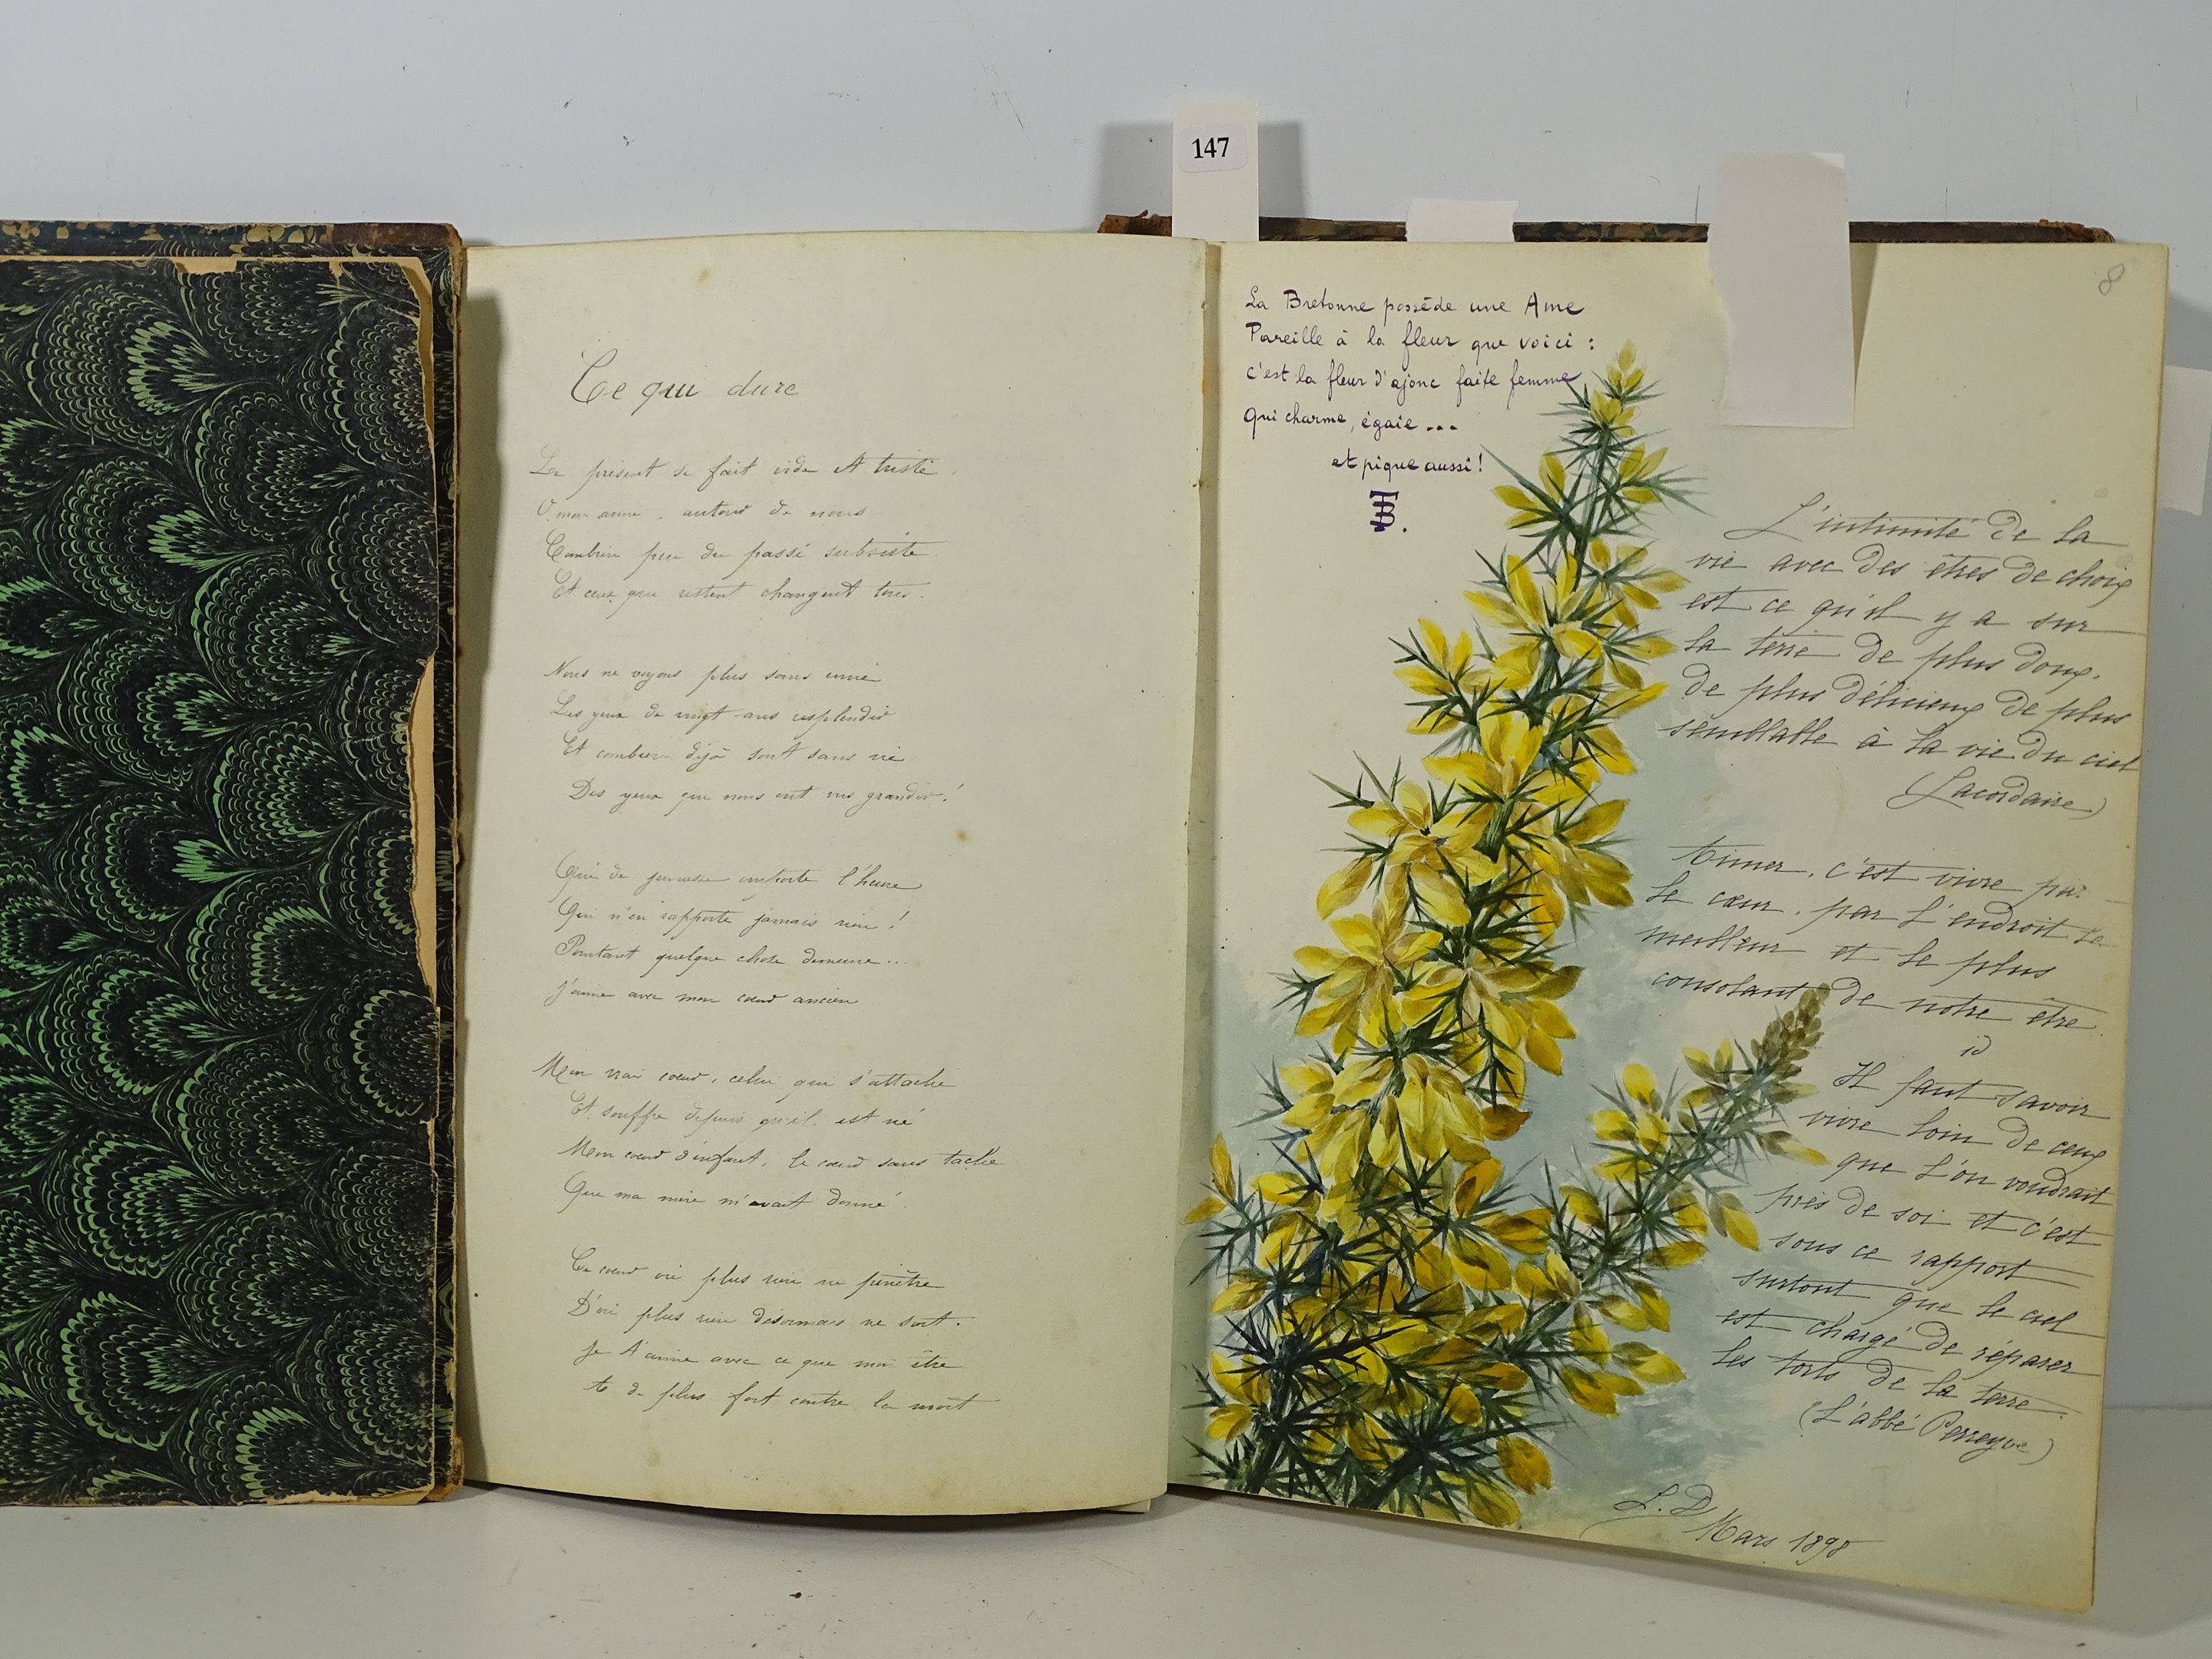 147
8
Ce qui dure
Le présent se fait vide et triste
O mon amie, autour de nous
Combien peu du passé subsiste
Et ceux qui restent changent tous.
Nous ne voyons plus sans envie
Les yeux de vingt ans resplendir
Et combien déjà sont sans vie
Des yeux qui nous ont vus grandir!
Que de jeunesse emporte l'heure
Qui n'en rapporte jamais rien!
Pourtant quelque chose demeure...
J'aime avec mon cœur ancien
Mon vrai cœur, celui qui s'attache
Et souffre depuis qu'il est né
Mon cœur d'enfant, le cœur sans tache
Que ma mère m'avait donné
Ce cœur où plus rien ne pénètre
D'où plus rien désormais ne sort.
Je t'aime avec ce que mon être
A de plus fort contre la mort
La Bretonne possède une Ame
Pareille à la fleur que voici :
c'est la fleur d'ajonc faite femme
Qui charme, égaie...
et pique aussi!
L'intimité de la
vie avec des êtres de choix
est ce qu'il y a sur
la terre de plus doux,
de plus délicieux de plus
semblable à la vie du ciel
(Lacordaire)
Aimer, c'est vivre par
le cœur, par l'endroit le
meilleur et le plus
consolant de notre être.
id
Il faut savoir
vivre loin de ceux
que l'on voudrait
près de soi et c'est
sous ce rapport
surtout que le ciel
est chargé de réparer
les torts de la terre.
(L'abbé Perreyve)
L. D
Mars 1898